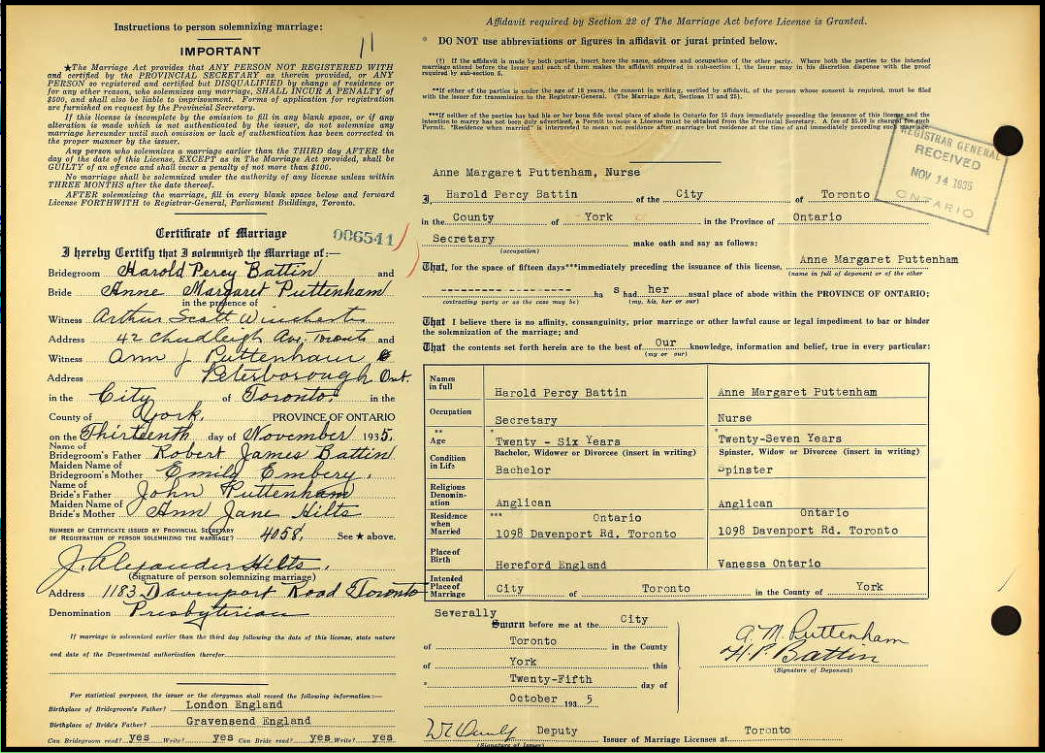 Instructions to person solemnizing marriage:
11
IMPORTANT
★The Marriage Act provides that ANY PERSON NOT REGISTERED WITH
and certified by the PROVINCIAL SECRETARY as therein provided, or ANY
PERSON so registered and certified but DISQUALIFIED by change of residence or
for any other reason, who solemnizes any marriage, SHALL INCUR A PENALTY of
$500, and shall also be liable to imprisonment. Forms of application for registration
are furnished on request by the Provincial Secretary.
If this license is incomplete by the omission to fill in any blank space, or if any
alteration is made which is not authenticated by the issuer, do not solemnize any
marriage hereunder until such omission or lack of authentication has been corrected in
the proper manner by the issuer.
Any person who solemnizes a marriage earlier than the THIRD day AFTER the
day of the date of this License, EXCEPT as in The Marriage Act provided, shall be
GUILTY of an offence and shall incur a penalty of not more than $100.
No marriage shall be solemnized under the authority of any license unless within
THREE MONTHS after the date thereof.
AFTER solemnizing the marriage, fill in every blank space below and forward
License FORTHWITH to Registrar-General, Parliament Buildings, Toronto.
Certificate of Marriage 006541
I hereby Certify that I solemnized the Marriage of:—
Bridegroom Harold Percy Battin and
Bride Anne Margaret Puttenham
in the presence of
Witness Arthur Scott
Address 42 Chudleigh Ave, Toronto
Witness Ann J Puttenham
Address Peterborough Ont.
in the City of Toronto. in the
County of York, PROVINCE OF ONTARIO
on the Thirteenth day of November 1935.
Name of
Bridegroom's Father Robert James Battin
Maiden Name of
Bridegroom's Mother Emily Embery.
Name of
Bride's Father John Puttenham
Maiden Name of
Bride's Mother Ann Jane Hilts
NUMBER OF CERTIFICATE ISSUED BY PROVINCIAL SECRETARY
OF REGISTRATION OF PERSON SOLEMNIZING THE MARRIAGE? 4058. See ★ above.
J. Alexander Hilts.
(Signature of person solemnizing marriage)
Address 1183 Davenport Road Toronto
Denomination Presbyterian
If marriage is solemnized earlier than the third day following the date of this license, state nature
and date of the Departmental authorization therefor
For statistical purposes, the issuer or the clergyman shall record the following information:—
Birthplace of Bridegroom's Father? London England
Birthplace of Bride's Father? Gravensend England
Can Bridegroom read? yes Write? yes Can Bride read? yes Write? yes
Affidavit required by Section 22 of The Marriage Act before License is Granted.
* DO NOT use abbreviations or figures in affidavit or jurat printed below.
(†) If the affidavit is made by both parties, insert here the name, address and occupation of the other party. Where both the parties to the intended
marriage attend before the Issuer and each of them makes the affidavit required in sub-section 1, the Issuer may in his discretion dispense with the proof
required by sub-section 5.
**If either of the parties is under the age of 18 years, the consent in writing, verified by affidavit, of the person whose consent is required, must be filed
with the issuer for transmission to the Registrar-General. (The Marriage Act, Sections 17 and 25).
***If neither of the parties has had his or her bona fide usual place of abode in Ontario for 15 days immediately preceding the issuance of this license and the
intention to marry has not been duly advertised, a Permit to issue a License must be obtained from the Provincial Secretary. A fee of $5.00 is charged for such
Permit. "Residence when married" is interpreted to mean not residence after marriage but residence at the time of and immediately preceding such marriage.
REGISTRAR GENERAL
RECEIVED
NOV 14 1935
ONTARIO
Anne Margaret Puttenham, Nurse
I, Harold Percy Battin of the City of Toronto
in the County of York in the Province of Ontario
Secretary make oath and say as follows:
(occupation)
That, for the space of fifteen days***immediately preceding the issuance of this license, Anne Margaret Puttenham
(name in full of deponent or of the other
------------------ ha s had her usual place of abode within the PROVINCE OF ONTARIO;
contracting party or as the case may be) (my, his, her or our)
That I believe there is no affinity, consanguinity, prior marriage or other lawful cause or legal impediment to bar or hinder
the solemnization of the marriage; and
That the contents set forth herein are to the best of Our knowledge, information and belief, true in every particular:
(my or our)
Names in full Harold Percy Battin Anne Margaret Puttenham
Occupation Secretary Nurse
** Age * Twenty - Six Years * Twenty-Seven Years
Condition in Life Bachelor, Widower or Divorcee (insert in writing) Spinster, Widow or Divorcee (insert in writing)
Bachelor Spinster
Religious Denomination Anglican Anglican
Residence when Married *** Ontario Ontario
1098 Davenport Rd. Toronto 1098 Davenport Rd. Toronto
Place of Birth Hereford England Vanessa Ontario
Intended Place of Marriage City of Toronto in the County of York
Severally
Sworn before me at the City
of Toronto in the County
of York this
* Twenty-Fifth day of
October 1935
A. M. Puttenham
H. P. Battin
(Signature of Deponent)
Deputy Issuer of Marriage Licenses at Toronto
(Signature of Issuer)